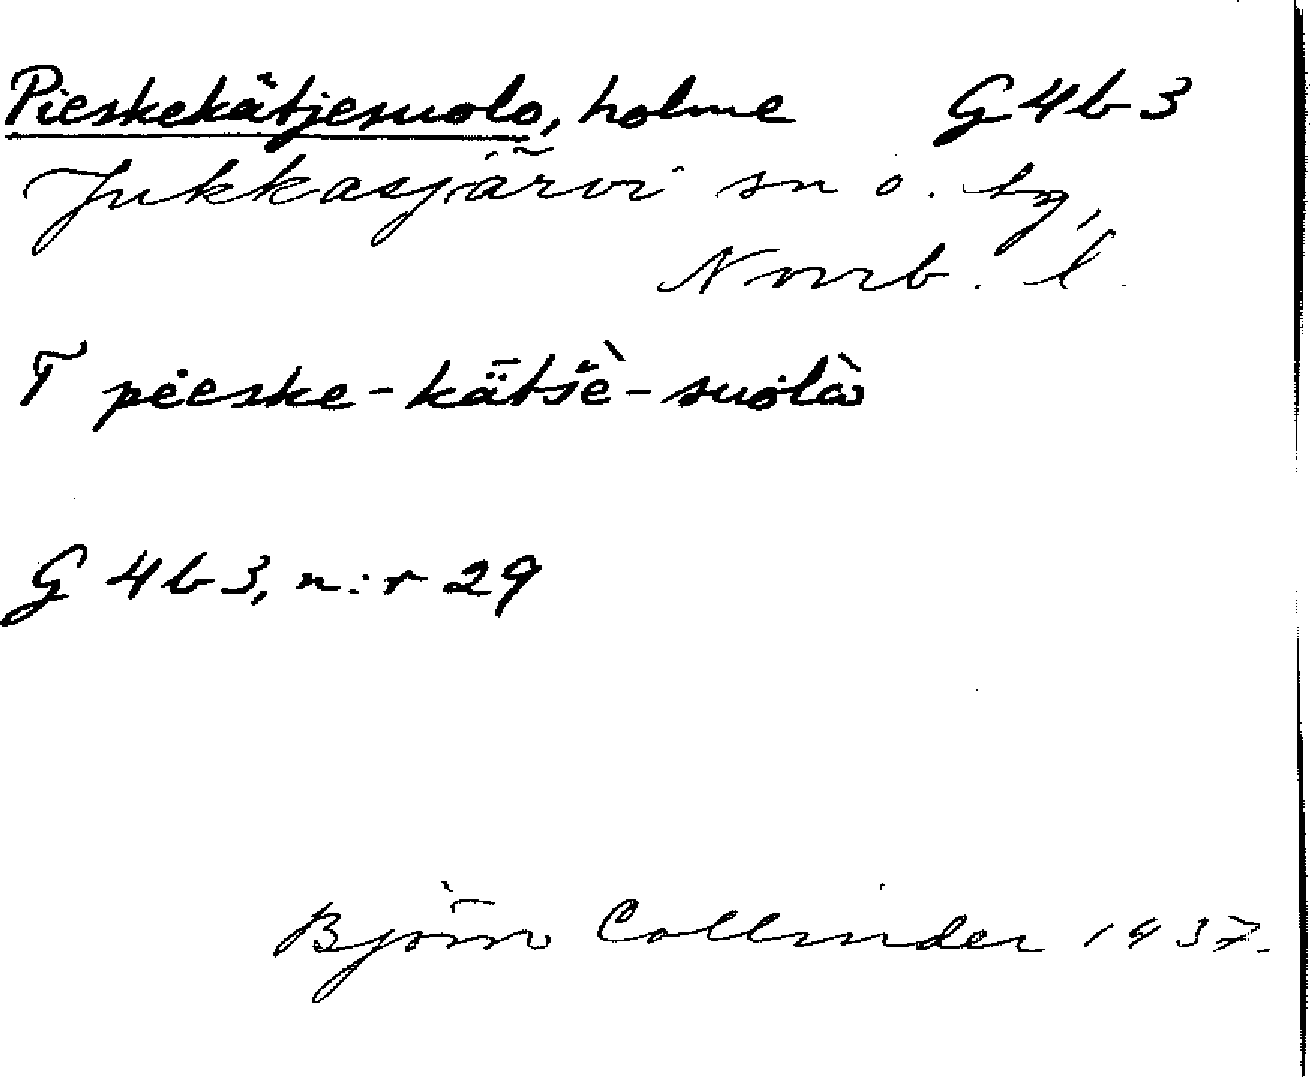 Pieskekätjesuolo, holme G4b3
Jukkasjärvi sn o. by,
Norrb. l.
T pèeske-kǟtšè-suölà
G 4b3, n:r 29
Björn Collinder 1937.